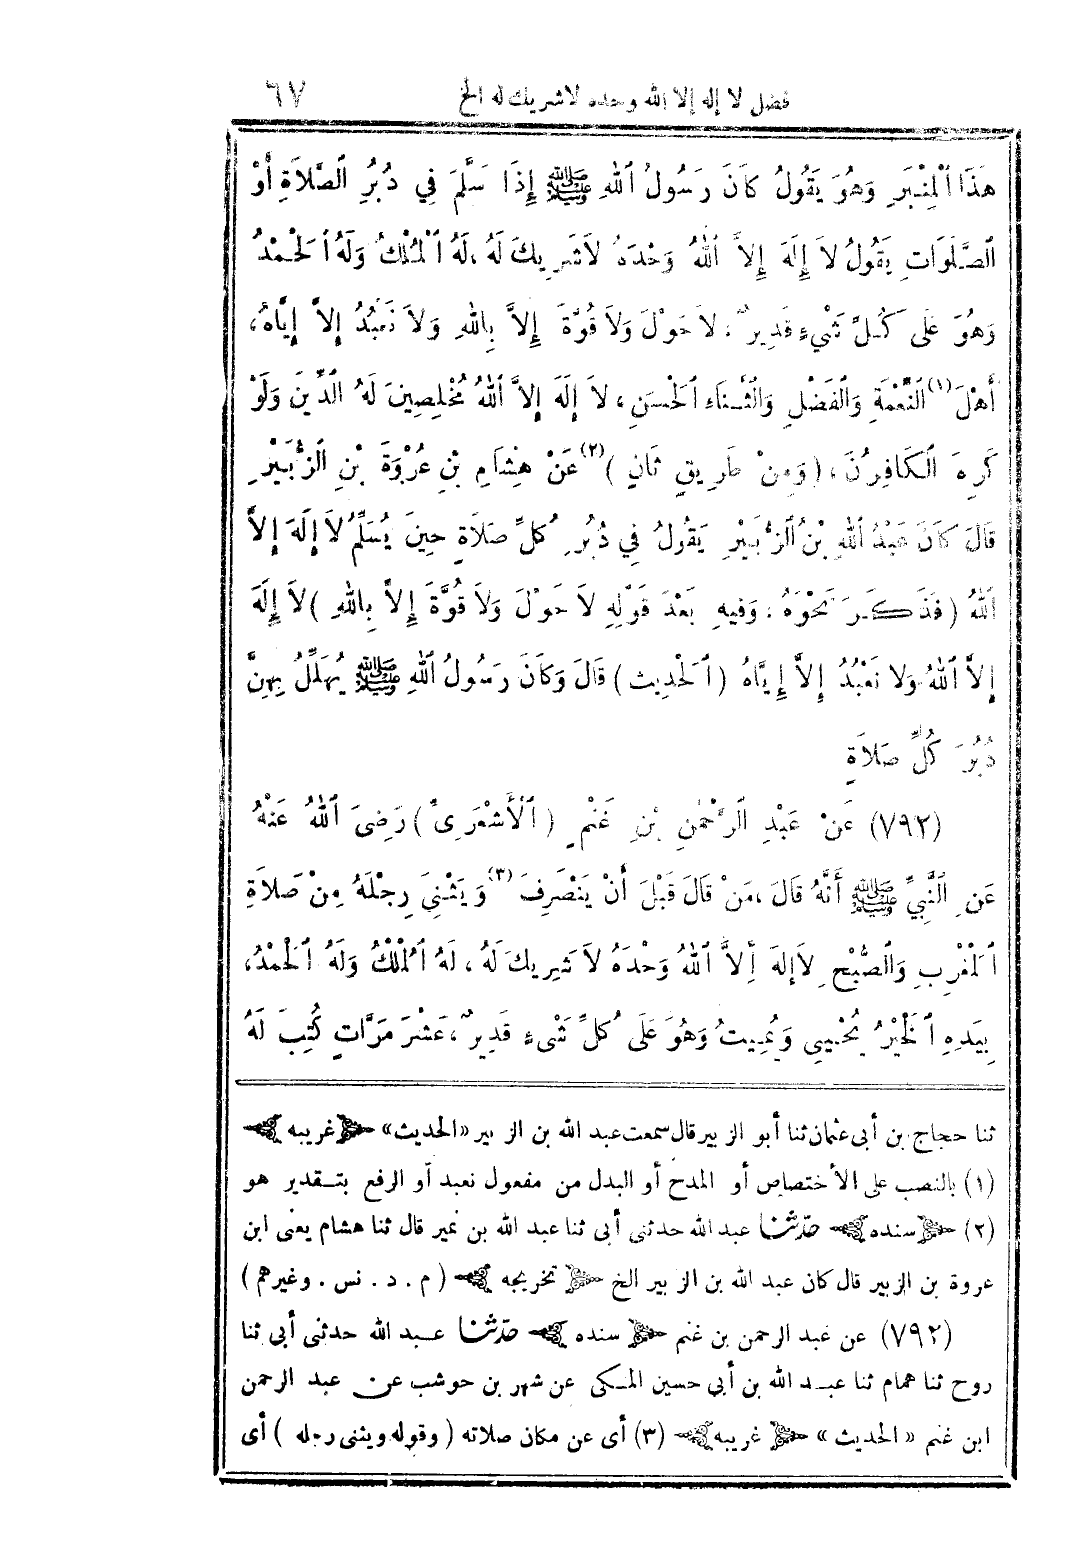 فضل لا إله إلا الله وحده لا شريك له الخ ٦٧
هَذَا ٱلْمِنْبَرِ وَهُوَ يَقُولُ كَانَ رَسُولُ ٱللهِ ﷺ إِذَا سَلَّمَ فِي دُبُرِ ٱلصَّلاَةِ أَوْ
ٱلصَّلَوَاتِ يَقُولُ لاَ إِلَهَ إِلاَّ ٱللهُ وَحْدَهُ لاَ شَرِيكَ لَهُ، لَهُ ٱلْمُلْكُ وَلَهُ ٱلْحَمْدُ
وَهُوَ عَلَى كُلِّ شَيْءٍ قَدِيرٌ، لاَ حَوْلَ وَلاَ قُوَّةَ إِلاَّ بِاللهِ وَلاَ نَعْبُدُ إِلاَّ إِيَّاهُ،
أَهْلَ (١) ٱلنِّعْمَةِ وَٱلْفَضْلِ وَٱلثَّنَاءِ ٱلْحَسَنِ، لاَ إِلَهَ إِلاَّ ٱللهُ مُخْلِصِينَ لَهُ ٱلدِّينَ وَلَوْ
كَرِهَ ٱلْكَافِرُنَ، (وَمِنْ طَرِيقٍ ثَانٍ) (٢) عَنْ هِشَامِ بْنِ عُرْوَةَ بْنِ ٱلزُّبَيْرِ
قَالَ كَانَ عَبْدُ ٱللهِ بْنُ ٱلزُّبَيْرِ يَقُولُ فِي دُبُرِ كُلِّ صَلاَةٍ حِينَ يُسَلِّمُ لاَ إِلَهَ إِلاَّ
ٱللهُ (فَذَكَرَ نَحْوَهُ، وَفِيهِ بَعْدَ قَوْلِهِ لاَ حَوْلَ وَلاَ قُوَّةَ إِلاَّ بِاللهِ) لاَ إِلَهَ
إِلاَّ ٱللهُ وَلاَ نَعْبُدُ إِلاَّ إِيَّاهُ (ٱلْحَدِيث) قَالَ وَكَانَ رَسُولُ ٱللهِ ﷺ يُهَلِّلُ بِهِنَّ
دُبُرَ كُلِّ صَلاَةٍ
(٧٩٢) عَنْ عَبْدِ ٱلرَّحْمٰنِ بْنِ غَنْمٍ (ٱلْأَشْعَرِىِّ) رَضِىَ ٱللهُ عَنْهُ
عَنِ ٱلنَّبِيِّ ﷺ أَنَّهُ قَالَ، مَنْ قَالَ قَبْلَ أَنْ يَنْصَرِفَ (٣) وَيَثْنِىَ رِجْلَهُ مِنْ صَلاَةِ
ٱلْمَغْرِبِ وَٱلصُّبْحِ لاَ إلهَ إِلاَّ ٱللهُ وَحْدَهُ لاَ شَرِيكَ لَهُ، لَهُ ٱلْمُلْكُ وَلَهُ ٱلْحَمْدُ،
بِيَدِهِ ٱلْخَيْرُ يُحْيِي وَيُمِيتُ وَهُوَ عَلَى كُلِّ شَىْءٍ قَدِيرٌ، عَشْرَ مَرَّاتٍ كُتِبَ لَهُ
ثنا حجاج بن أبى عثمان ثنا أبو الزبير قال سمعت عبد الله بن الزبير «الحديث» غريبه
(١) بالنصب على الأختصاص أو المدح أو البدل من مفعول نعبد أو الرفع بتقدير هو
(٢) سنده حدثنا عبد الله حدثنى أبى ثنا عبد الله بن نمير قال ثنا هشام يعنى ابن
عروة بن الزبير قال كان عبد الله بن الزبير الخ تخريجه (م . د . نس . وغيرهم)
(٧٩٢) عن عبد الرحمن بن غنم سنده حدثنا عبد الله حدثنى أبى ثنا
روح ثنا همام ثنا عبد الله بن أبي حسين المكى عن شهر بن حوشب عن عبد الرحمن
ابن غنم «الحديث» غريبه (٣) أى عن مكان صلاته (وقوله ويثنى رجله) أى